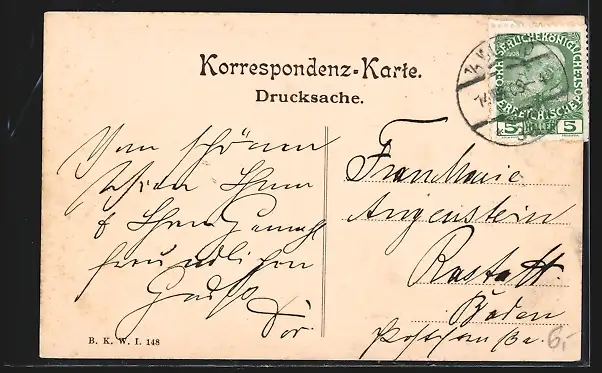 Korrespondenz-Karte.
Drucksache.
KAISERLICHE KÖNIGLICHE
ÖSTERREICHISCHE POST
5 HELLER 5
Vom schönen
Wien Ihnen
& Ihrem Gemahl
freundlichen
Gruß
Frau Marie
Angenstein
Rastatt.
Baden
Poststraße
B. K. W. I. 148
6,-